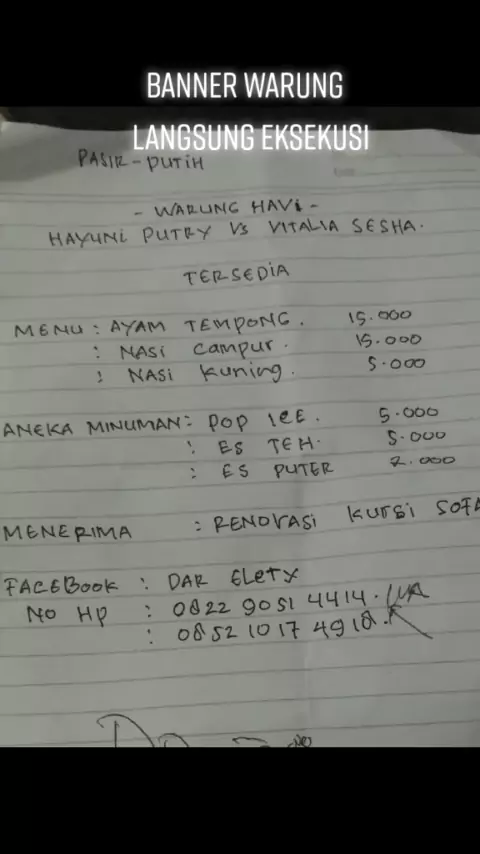 BANNER WARUNG
LANGSUNG EKSEKUSI
PASIR - PUTIH
- WARUNG HAVI -
HAYUNI PUTRY VS VITALIA SESHA.
TERSEDIA
MENU : AYAM TEMPONG. 15.000
: NASI CAMPUR. 15.000
: NASI KUNING. 5.000
ANEKA MINUMAN : POP ICE. 5.000
: ES TEH. 5.000
: ES PUTER 2.000
MENERIMA : RENOVASI KURSI SOFA
FACEBOOK : DAR ELETY
NO HP : 0822 9051 4414. WA
: 0852 1017 4918.